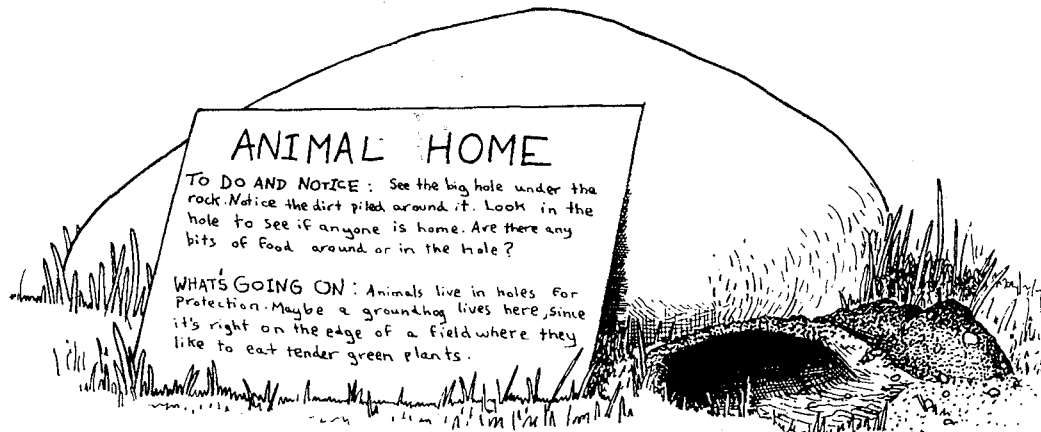 ANIMAL HOME
TO DO AND NOTICE: See the big hole under the
rock. Notice the dirt piled around it. Look in the
hole to see if anyone is home. Are there any
bits of food around or in the hole?
WHAT'S GOING ON: Animals live in holes for
Protection. Maybe a groundhog lives here, since
it's right on the edge of a field where they
like to eat tender green plants.